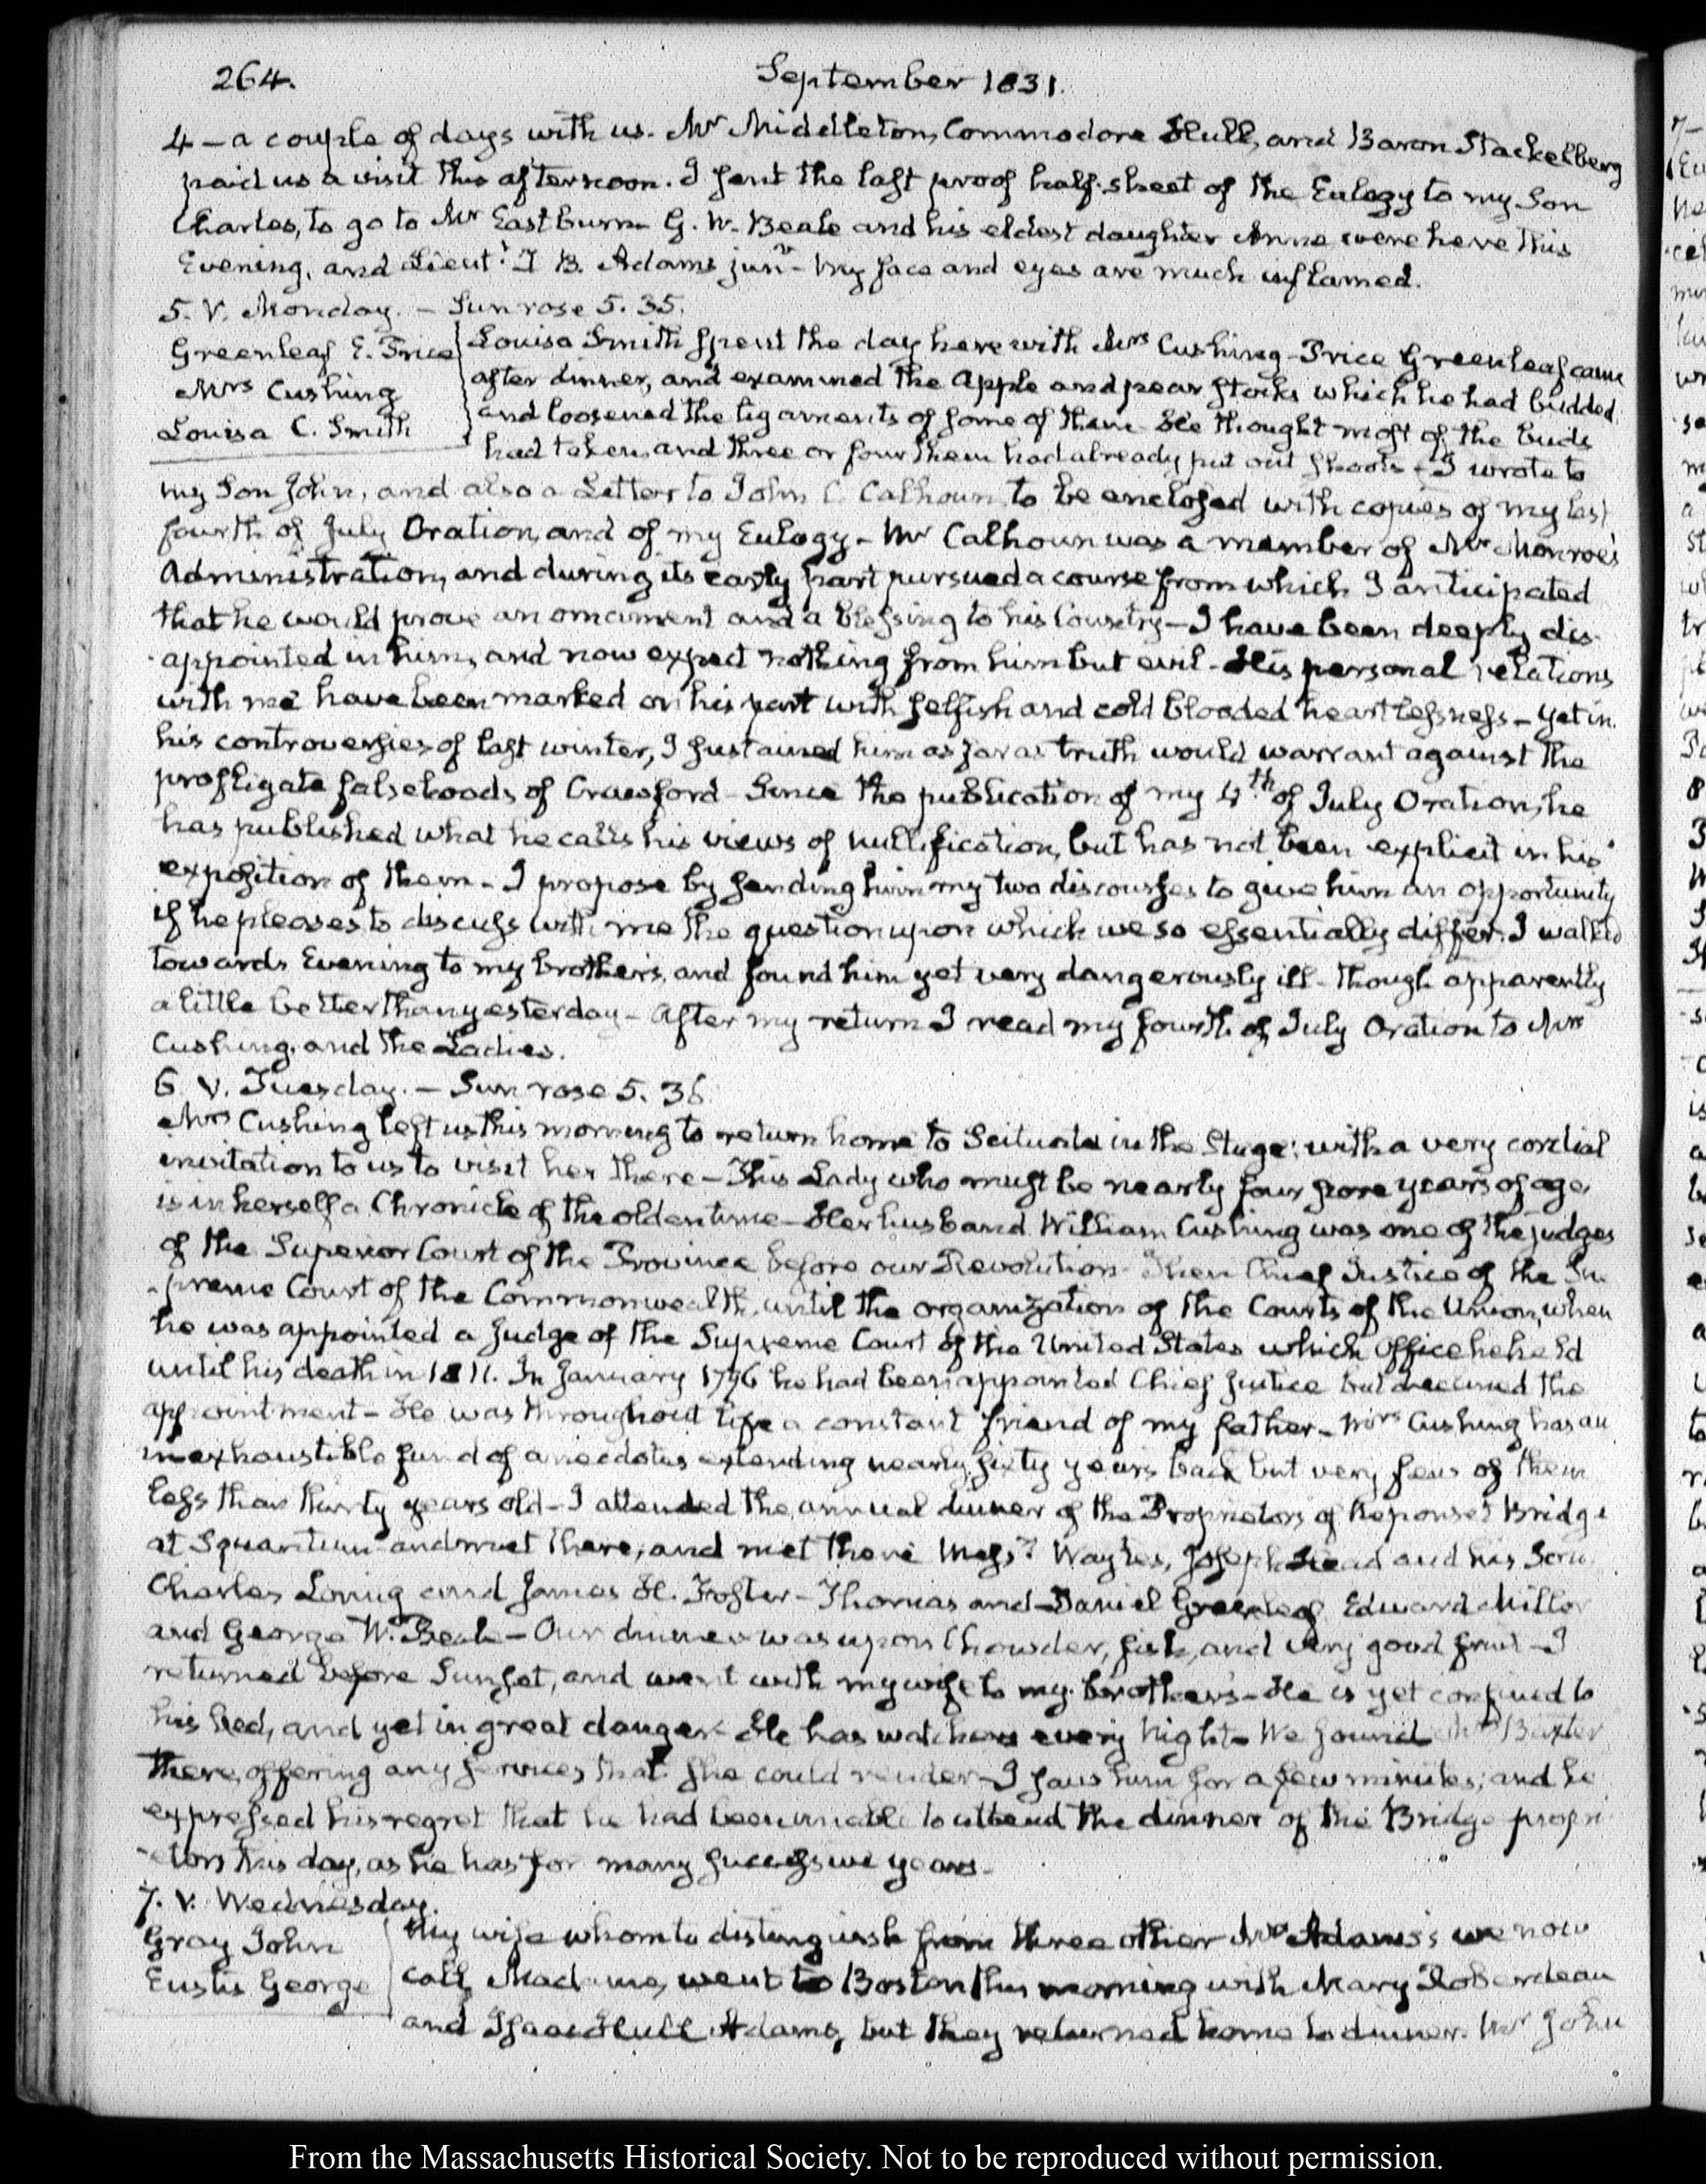 264. September 1831.
4 – a couple of days with us. Mr Middleton, Commodore Hull, and Baron Stackelberg
paid us a visit this afternoon. I sent the last proof half-sheet of the Eulogy to my Son
Charles, to go to Mr Eastburn G. W. Beale and his eldest daughter Anne were here this
Evening, and Lieut.t T B. Adams junr – My face and eyes are much inflamed.
5. V. Monday. – Sun rose 5. 35.
Greenleaf E. Price
Mrs Cushing
Louisa C. Smith
Louisa Smith spent the day here with Mrs Cushing – Price Greenleaf came
after dinner, and examined the Apple and pear stocks which he had budded
and loosened the ligaments of some of them He thought most of the buds
had taken and three or four them had already put out shoots – I wrote to
my Son John, and also a Letter to John C. Calhoun to be enclosed with copies of my last
fourth of July Oration, and of my Eulogy – Mr Calhoun was a member of Mr Monroe's
Administration, and during its early part pursued a course from which I anticipated
that he would prove an ornament and a blessing to his Country – I have been deeply dis-
-appointed in him, and now expect nothing from him but evil – His personal relations
with me have been marked on his part with selfish and cold blooded heartlessness – yet in
his controversies of last winter, I sustained him as far as truth would warrant against the
profligate falsehoods of Crawford – Since the publication of my 4th of July Oration, he
has published what he calls his views of nullification, but has not been explicit in his
exposition of them – I propose by sending him my two discourses to give him an opportunity
if he pleases to discuss with me the question upon which we so essentially differ. I walked
towards Evening to my brother's, and found him yet very dangerously ill – though apparently
a little better than yesterday – After my return I read my fourth of July Oration to Mrs
Cushing, and the Ladies.
6 V. Tuesday. – Sun rose 5. 36.
Mrs Cushing left us this morning to return home to Scituate in the Stage; with a very cordial
invitation to us to visit her there – This Lady who must be nearly four score years of age,
is in herself a Chronicle of the olden time – Her husband William Cushing was one of the judges
of the Superior Court of the Province before our Revolution – Then Chief Justice of the Su-
-preme Court of the Commonwealth, until the organization of the Courts of the Union, when
he was appointed a Judge of the Supreme Court of the United States which Office he held
until his death in 1811. In January 1796 he had been appointed Chief Justice but declined the
appointment – He was throughout life a constant friend of my father – Mrs Cushing has an
inexhaustible fund of anecdotes extending nearly sixty years back but very few of them
less than thirty years old – I attended the annual dinner of the Proprietors of Neponset Bridge
at Squantum and met there, and met there Messrs Wayles, Joseph Head and his Son,
Charles Loring and James H. Foster – Thomas and Daniel Greenleaf Edward Miller
and George W. Beale – Our dinner was upon Chowder, fish, and very good fruit – I
returned before Sunset, and went with my wife to my brother's – He is yet confined to
his bed, and yet in great danger – He has watchers every night – We found Mrs Baxter
there, offering any services that she could render – I saw him for a few minutes; and he
expressed his regret that he had been unable to attend the dinner of the Bridge propri-
-etors this day, as he has for many successive years –
7. V. Wednesday.
Gray John
Eustis George
My wife whom to distinguish from three other Mrs Adams's we now
call, Madame, went to Boston this morning with Mary Roberdeau
and Isaac Hull Adams, but they returned home to dinner. Mr John
From the Massachusetts Historical Society. Not to be reproduced without permission.